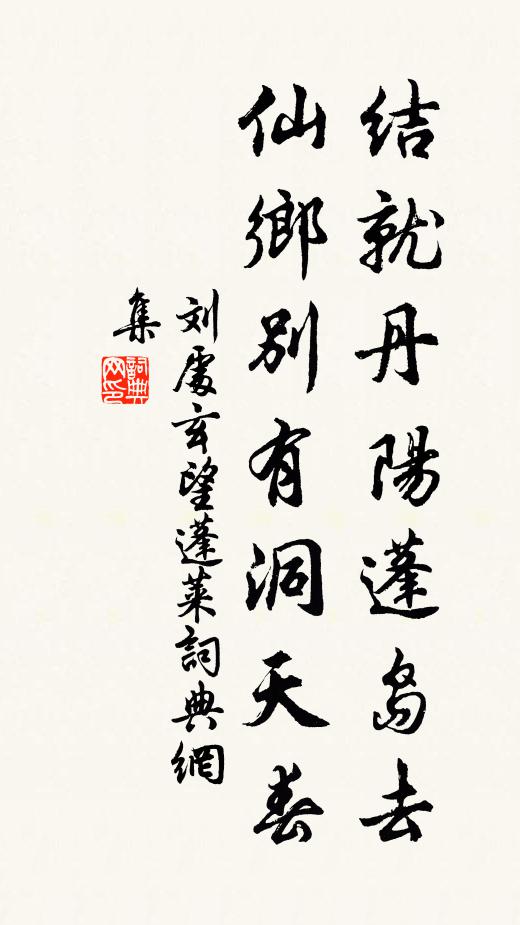 结就丹陽蓬島去
仙鄉別有洞天春
刘處玄望蓬莱詞典網
集
詞典网印